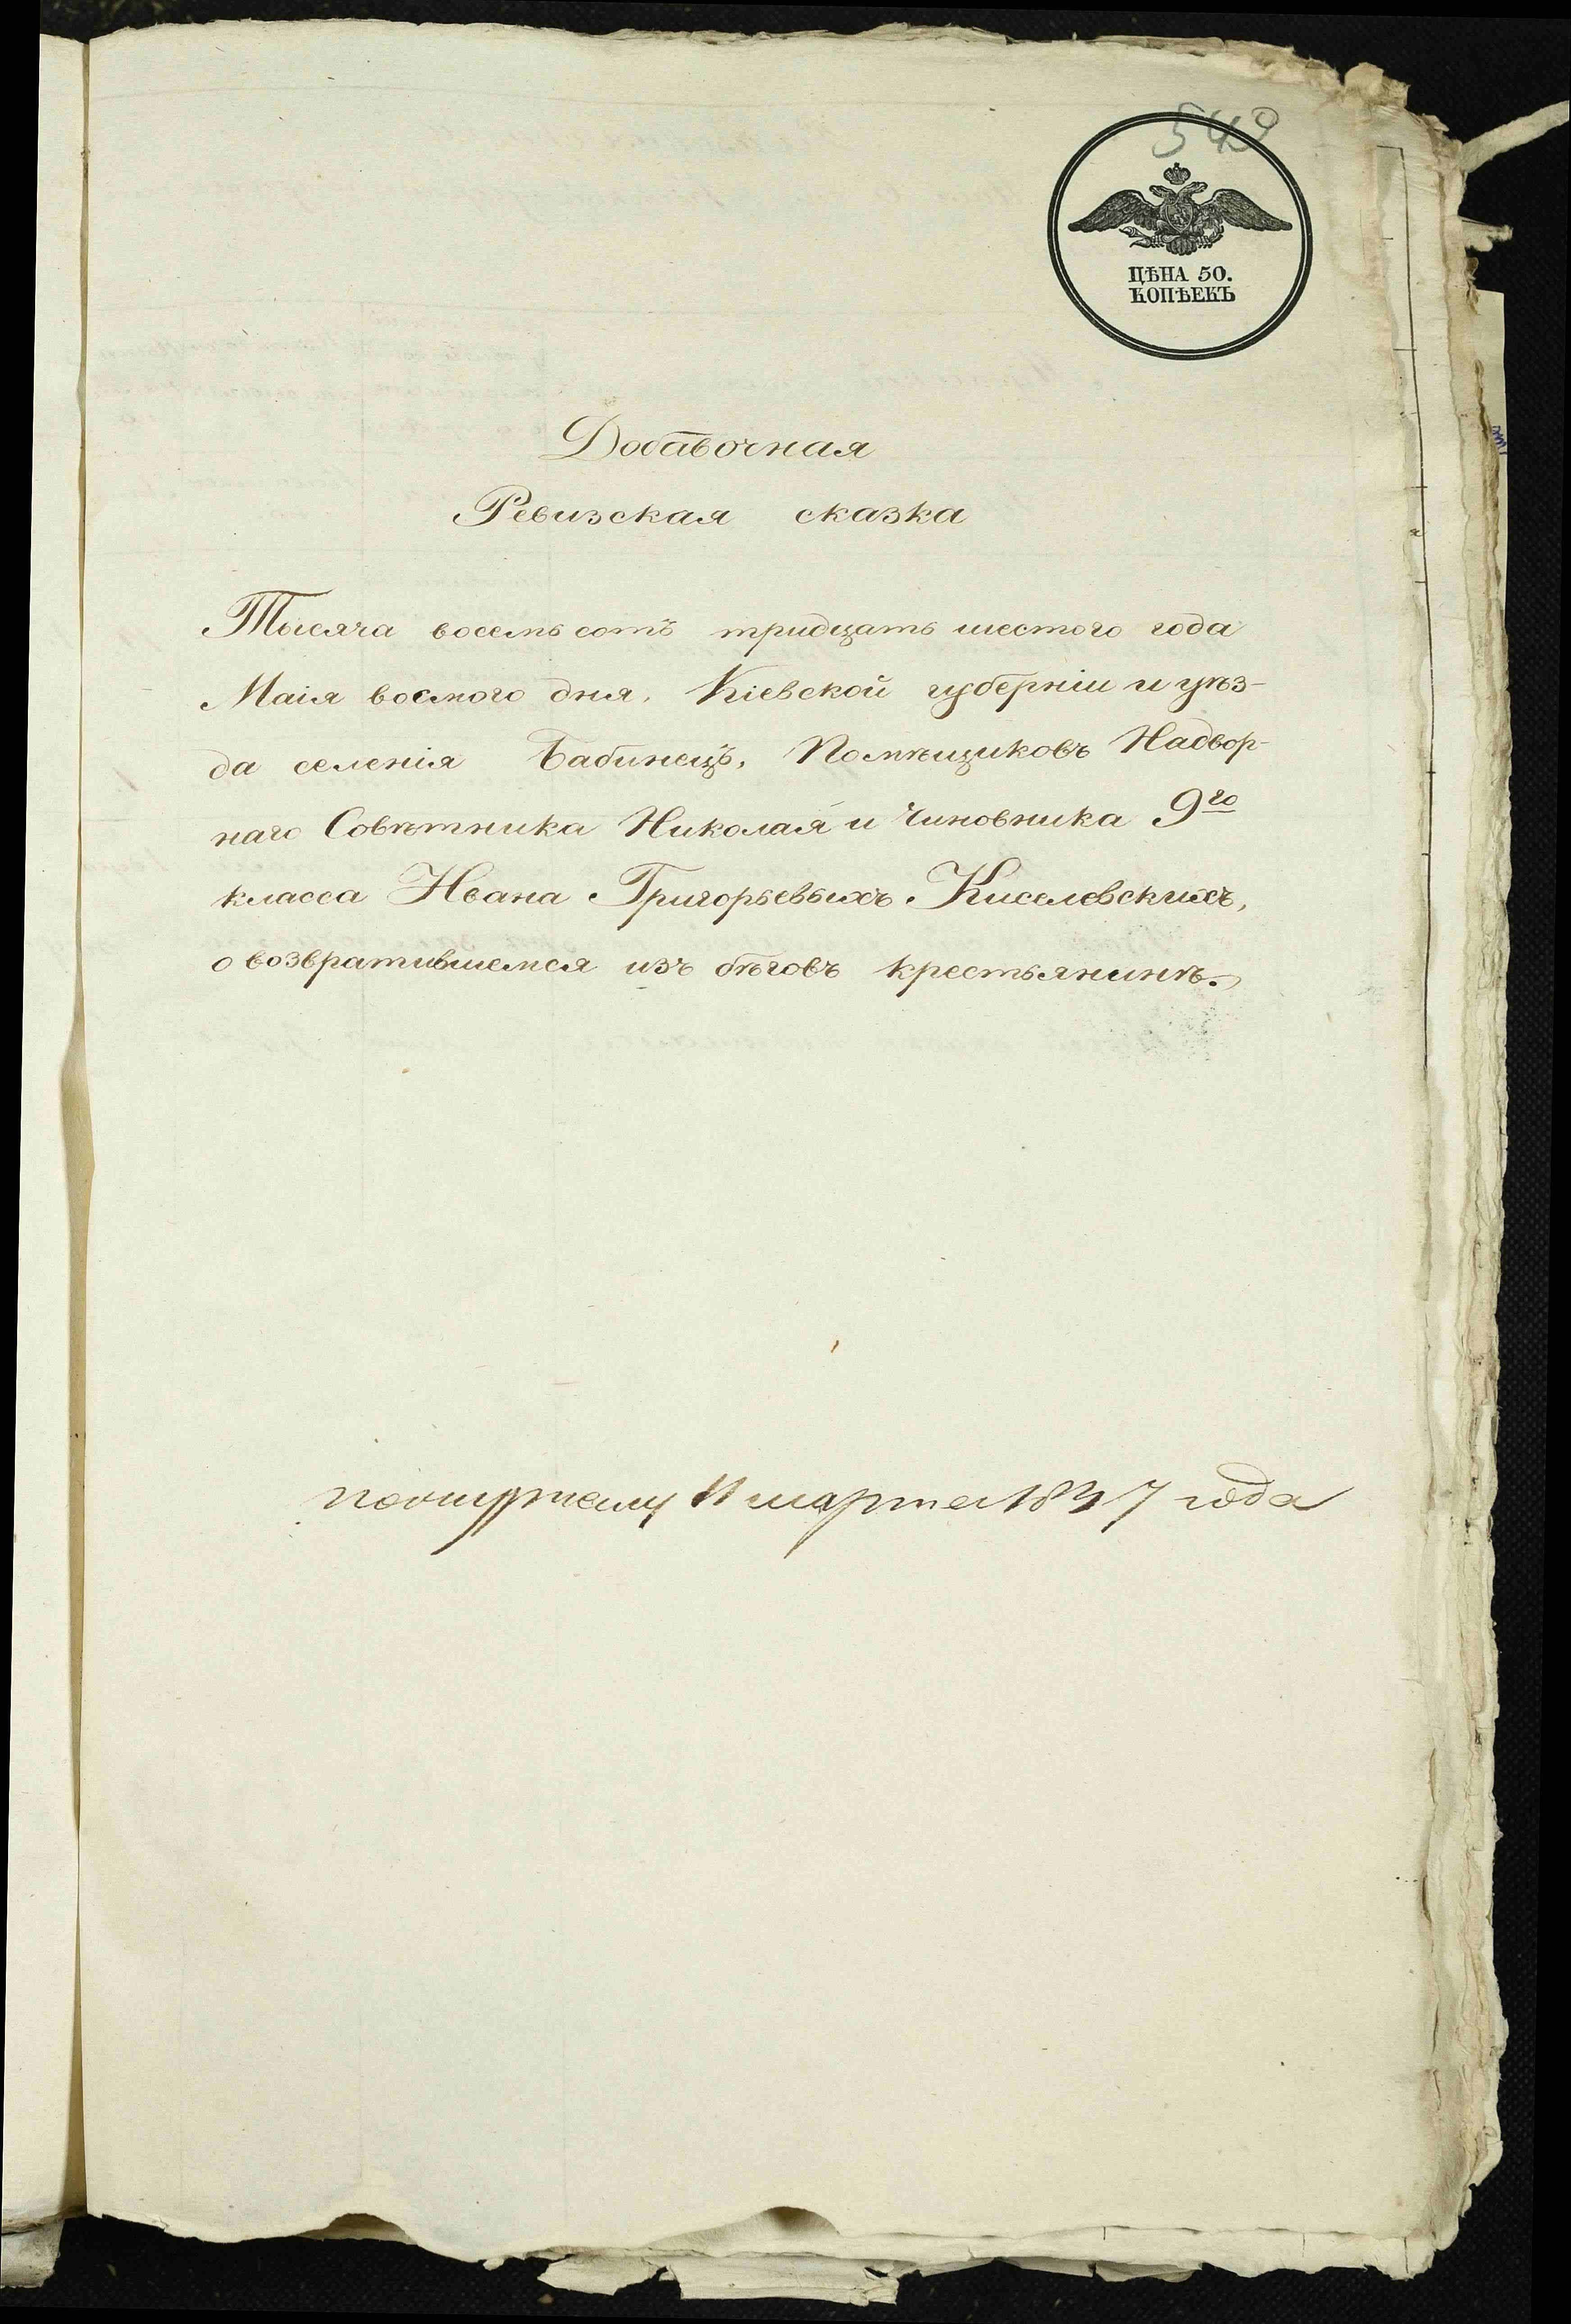 549
ЦѢНА 50.
КОПѢЕКЪ
Добавочная
Ревизская сказка
Тысяча восемь сотъ тридцать шестого года
Маія восмого дня, Кіевской губерніи и уѣз-
да селенія Бабинецъ, Помѣщиковъ Надвор-
наго Совѣтника Николая и Чиновника 9го
класса Ивана Григорьевыхъ Киселевскихъ,
о возвратившемся изъ бѣговъ крестьянинѣ.
11 марта года